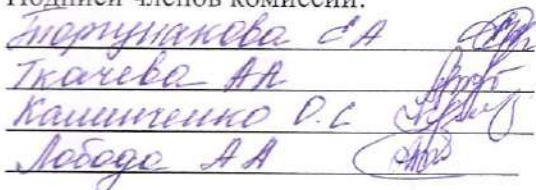 Подписи членов комиссии:
Торгунакова ЕА
Ткачева АА
Калиниченко О.С
Лобода АА